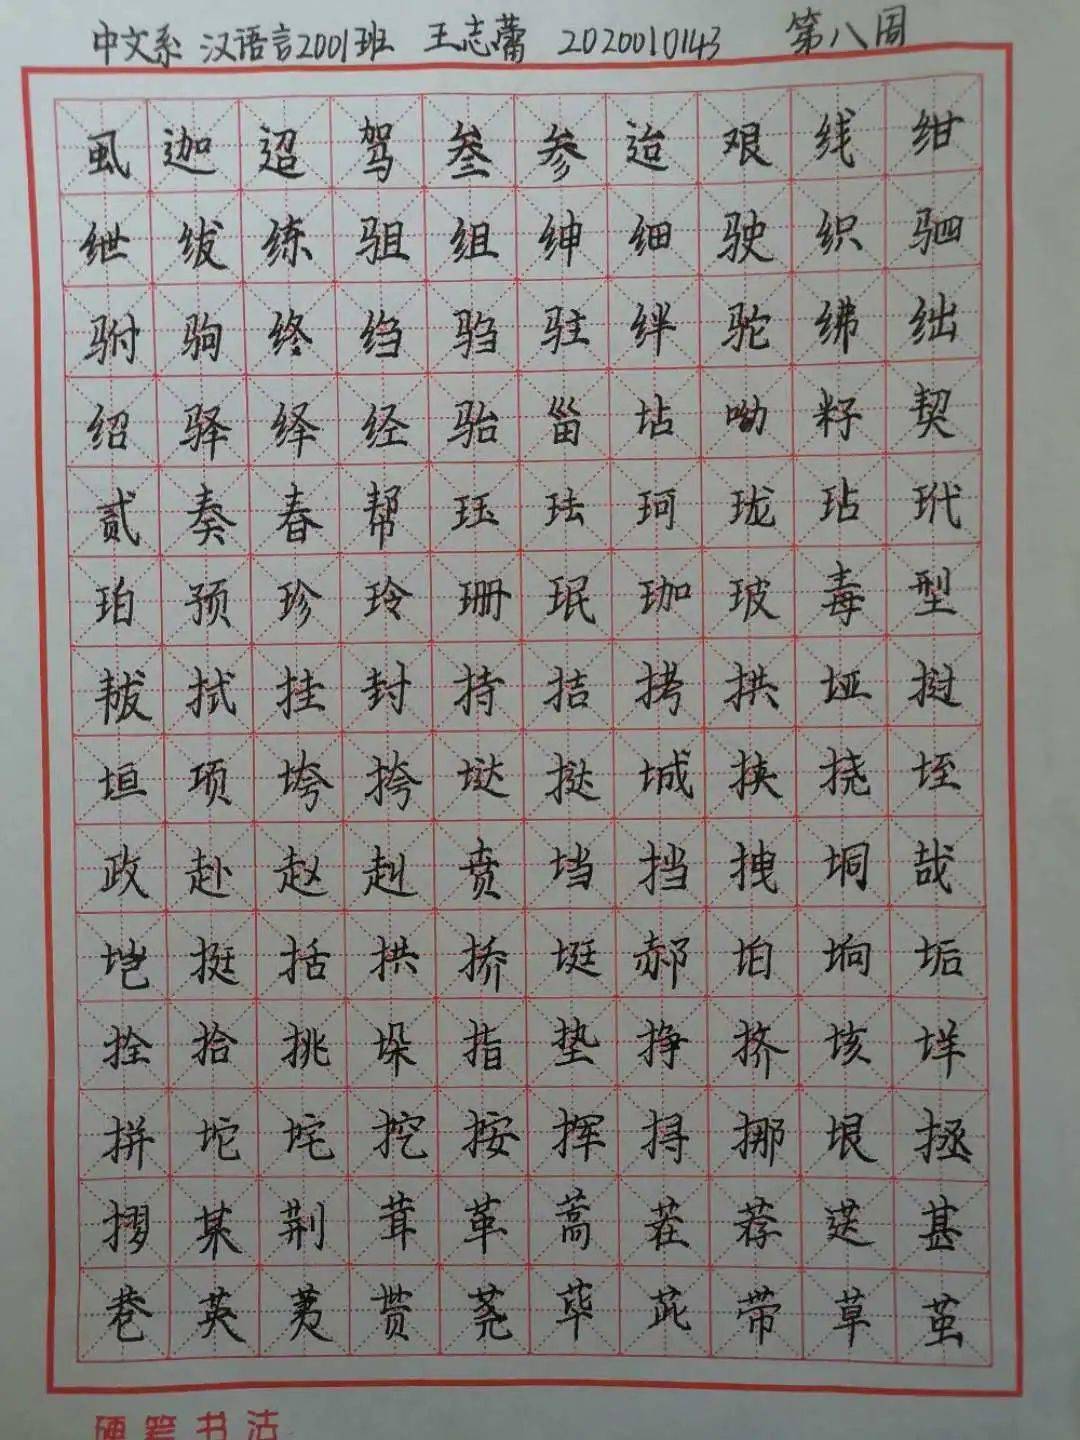 中文系 汉语言2001班 王志蕾 2020010143 第八周
虱迦迢驾叁参迨艰线绀
绁绂练驵组绅细驶织驷
驸驹终绉驺驻绊驼绋绌
绍驿绎经骀甾坫呦籽契
贰奏春帮珏珐珂珑玷玳
珀预珍玲珊珉珈玻毒型
韨拭挂封持拮拷拱垭挝
垣项垮挎垯挞城挟挠垤
政赴赵赳贲垱挡拽垌哉
垲挺括拱挢埏郝垍垧垢
拴拾挑垛指垫挣挤垓垟
拼坨垞挖按挥挦挪垠拯
某荆茸革茬荐甚
巷英荑贳荛荜茈带草茧
硬笔书法